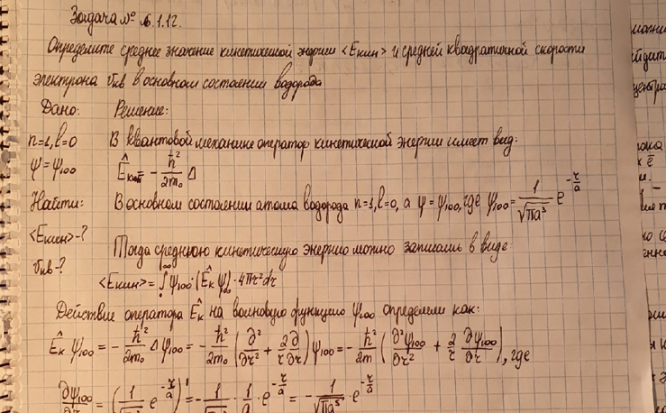 Задача № 6.1.12.
Определите среднее значение кинетической энергии <Eкин> и средней квадратичной скорости
электрона υкв в основном состоянии водорода
Дано: Решение:
n=1, l=0 В квантовой механике оператор кинетической энергии имеет вид:
ψ = ψ₁₀₀ Ê = - ħ²/2m₀ Δ
Найти: В основном состоянии атома водорода n=1, l=0, а ψ = ψ₁₀₀, где ψ₁₀₀ = 1/√(πa³) e^(-r/a)
<Eкин> -?
υкв -? Тогда среднюю кинетическую энергию можно записать в виде:
<Eкин> = ∫₀^∞ ψ₁₀₀ · (Êк ψ) · 4πr² dr
Действие оператора Êк на волновую функцию ψ₁₀₀ определим как:
Êк ψ₁₀₀ = - ħ²/2m₀ Δ ψ₁₀₀ = - ħ²/2m₀ (∂²/∂r² + 2/r ∂/∂r) ψ₁₀₀ = - ħ²/2m (∂²ψ₁₀₀/∂r² + 2/r ∂ψ₁₀₀/∂r), где
∂ψ₁₀₀/∂r = (1/√ e^(-r/a))' = - 1/√ · 1/a · e^(-r/a) = - 1/√(πa⁵) · e^(-r/a)